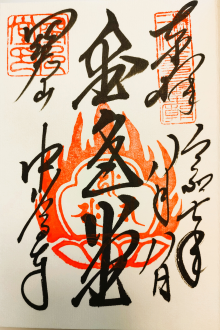 奉拝
令和七年
八月八日
金色堂
關山
中尊寺